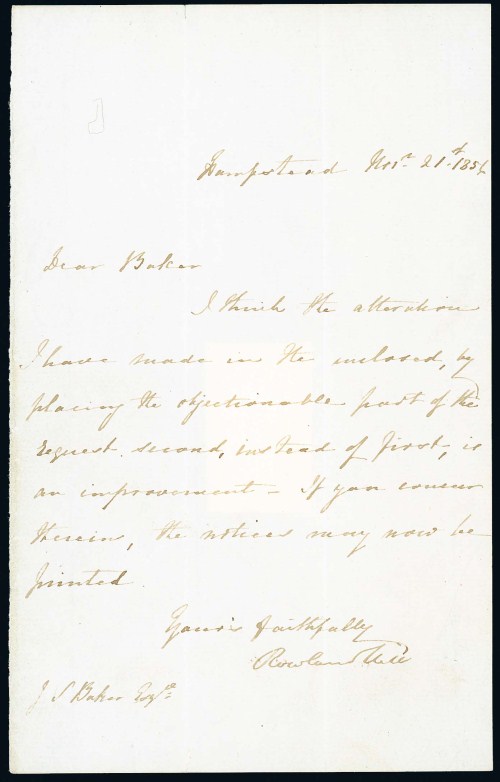 Hampstead Nov.r 21.st 1854
Dear Baker
I think the alteration
I have made in the enclosed, by
placing the objectionable part of the
request second, instead of first, is
an improvement - If you concur
therein, the notices may now be
printed.
Yours faithfully
Rowland Hill
J S Baker Esq.re